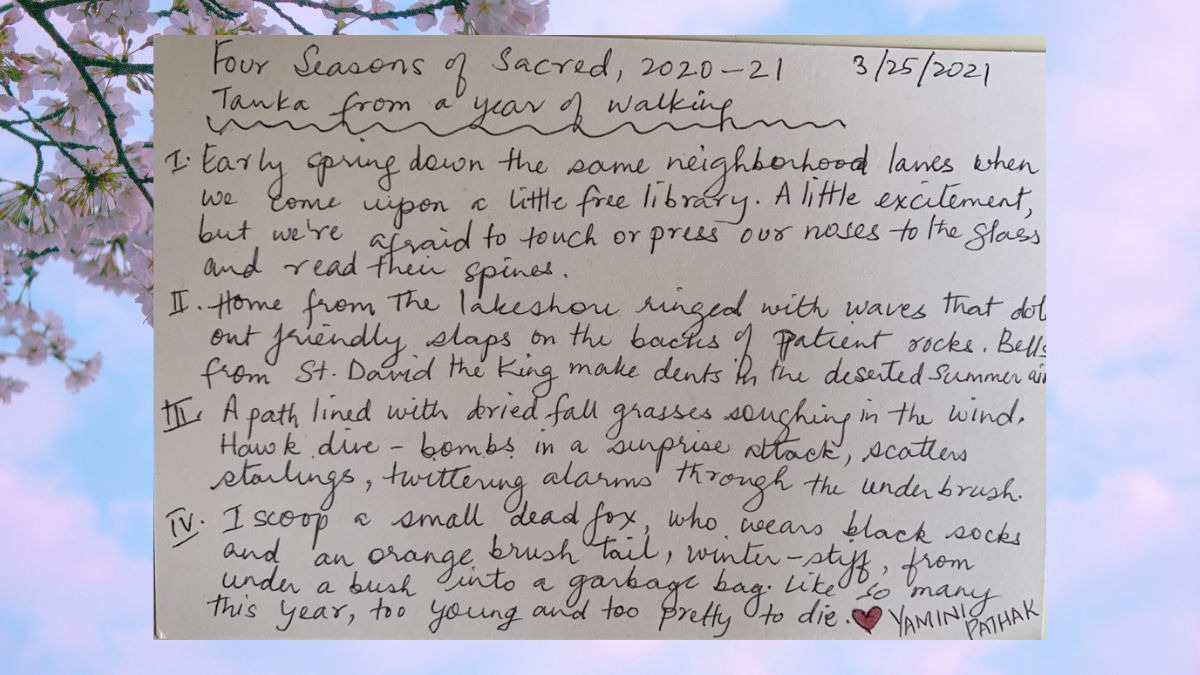 Four Seasons of Sacred, 2020-21 3/25/2021
Tanka from a year of walking
I. Early spring down the same neighborhood lanes when
we come upon a little free library. A little excitement,
but we're afraid to touch or press our noses to the glass
and read their spines.
II. Home from the lakeshore ringed with waves that dol
out friendly slaps on the backs of patient rocks. Bells
from St. David the King make dents in the deserted summer air
III. A path lined with dried fall grasses soughing in the wind.
Hawk dive-bombs in a surprise attack, scatters
starlings, twittering alarms through the underbrush.
IV. I scoop a small dead fox, who wears black socks
and an orange brush tail, winter-stiff, from
under a bush into a garbage bag. Like so many
this year, too young and too pretty to die. ❤ YAMINI
PATHAK